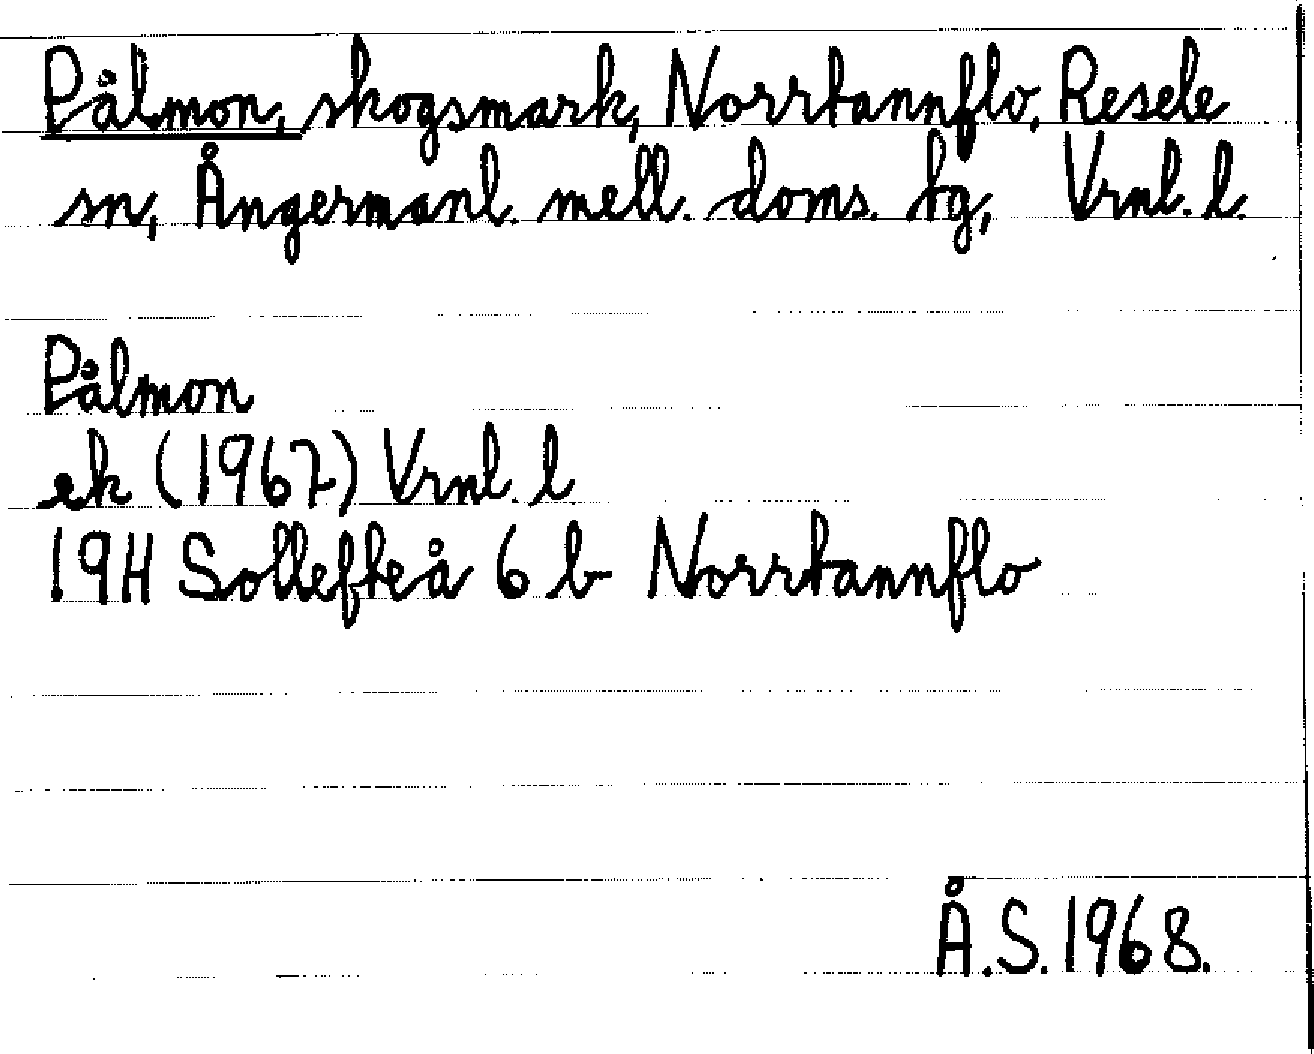 Pålmon, skogsmark, Norrtannflo, Resele
sn, Ångermanl. mell. doms. tg, Vrnl. l.
Pålmon
ek (1967) Vrnl. l
19H Sollefteå 6 b Norrtannflo
Å.S. 1968.